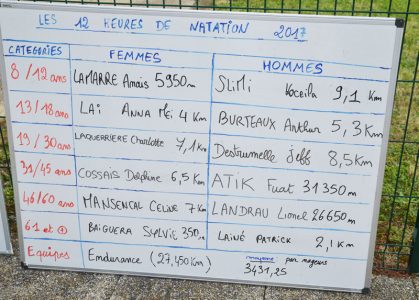 LES 12 HEURES DE NATATION 2017
CATEGORIES FEMMES HOMMES
8/12 ans LAMARRE Anais 5950m SLIMI Koceila 9,1 Km
13/18 ans LAI ANNA Mei 4 Km BURTEAUX Arthur 5,3 Km
19/30 ans LAQUERRIERE Charlotte 7,1 Km Destrumelle Jeff 8,5 Km
31/45 ans COSSAIS Delphine 6,5 Km ATIK Fuat 31350m
46/60 ans MANSENCAL Celine 7 Km LANDRAU Lionel 26650m
61 et + BAIGUERA SYLVIE 350m LAINÉ PATRICK 2,1 Km
Equipes Endurance (27,450 Km) moyenne par nageurs
3431,25